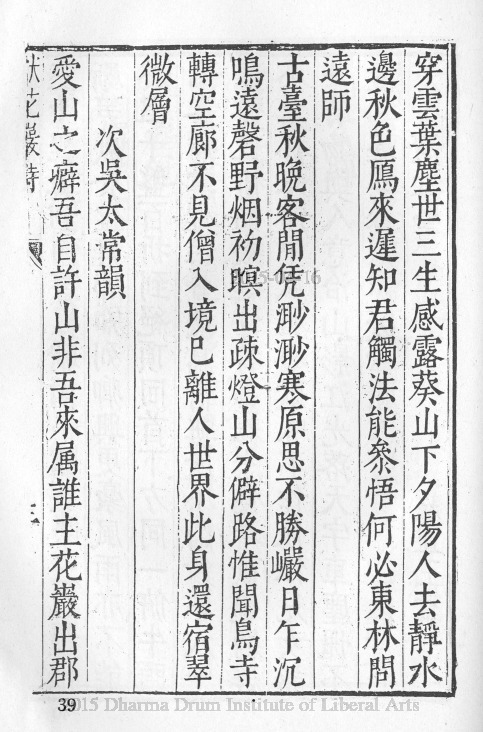 穿雲葉塵世三生感露葵山下夕陽人去靜水
邊秋色鴈來遲知君觸法能叅悟何必東林問
遠師
古臺秋晚客閒凭渺渺寒原思不勝巖日乍沉
鳴遠磬野烟初暝出疎燈山分僻路惟聞鳥寺
轉空廊不見僧入境已離人世界此身還宿翠
微層
次吳太常韻
愛山之癖吾自許山非吾來属誰主花巖出郡
39
2015 Dharma Drum Institute of Liberal Arts